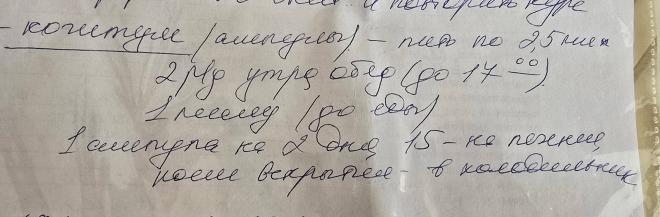 и повторить курс
- когитум (ампулы) - пить по 2,5 мл
2 р/д утро, обед (до 17 00).
1 месяц (до еды)
1 ампула на 2 дня, 15 - на
после вскрытия - в холодильник